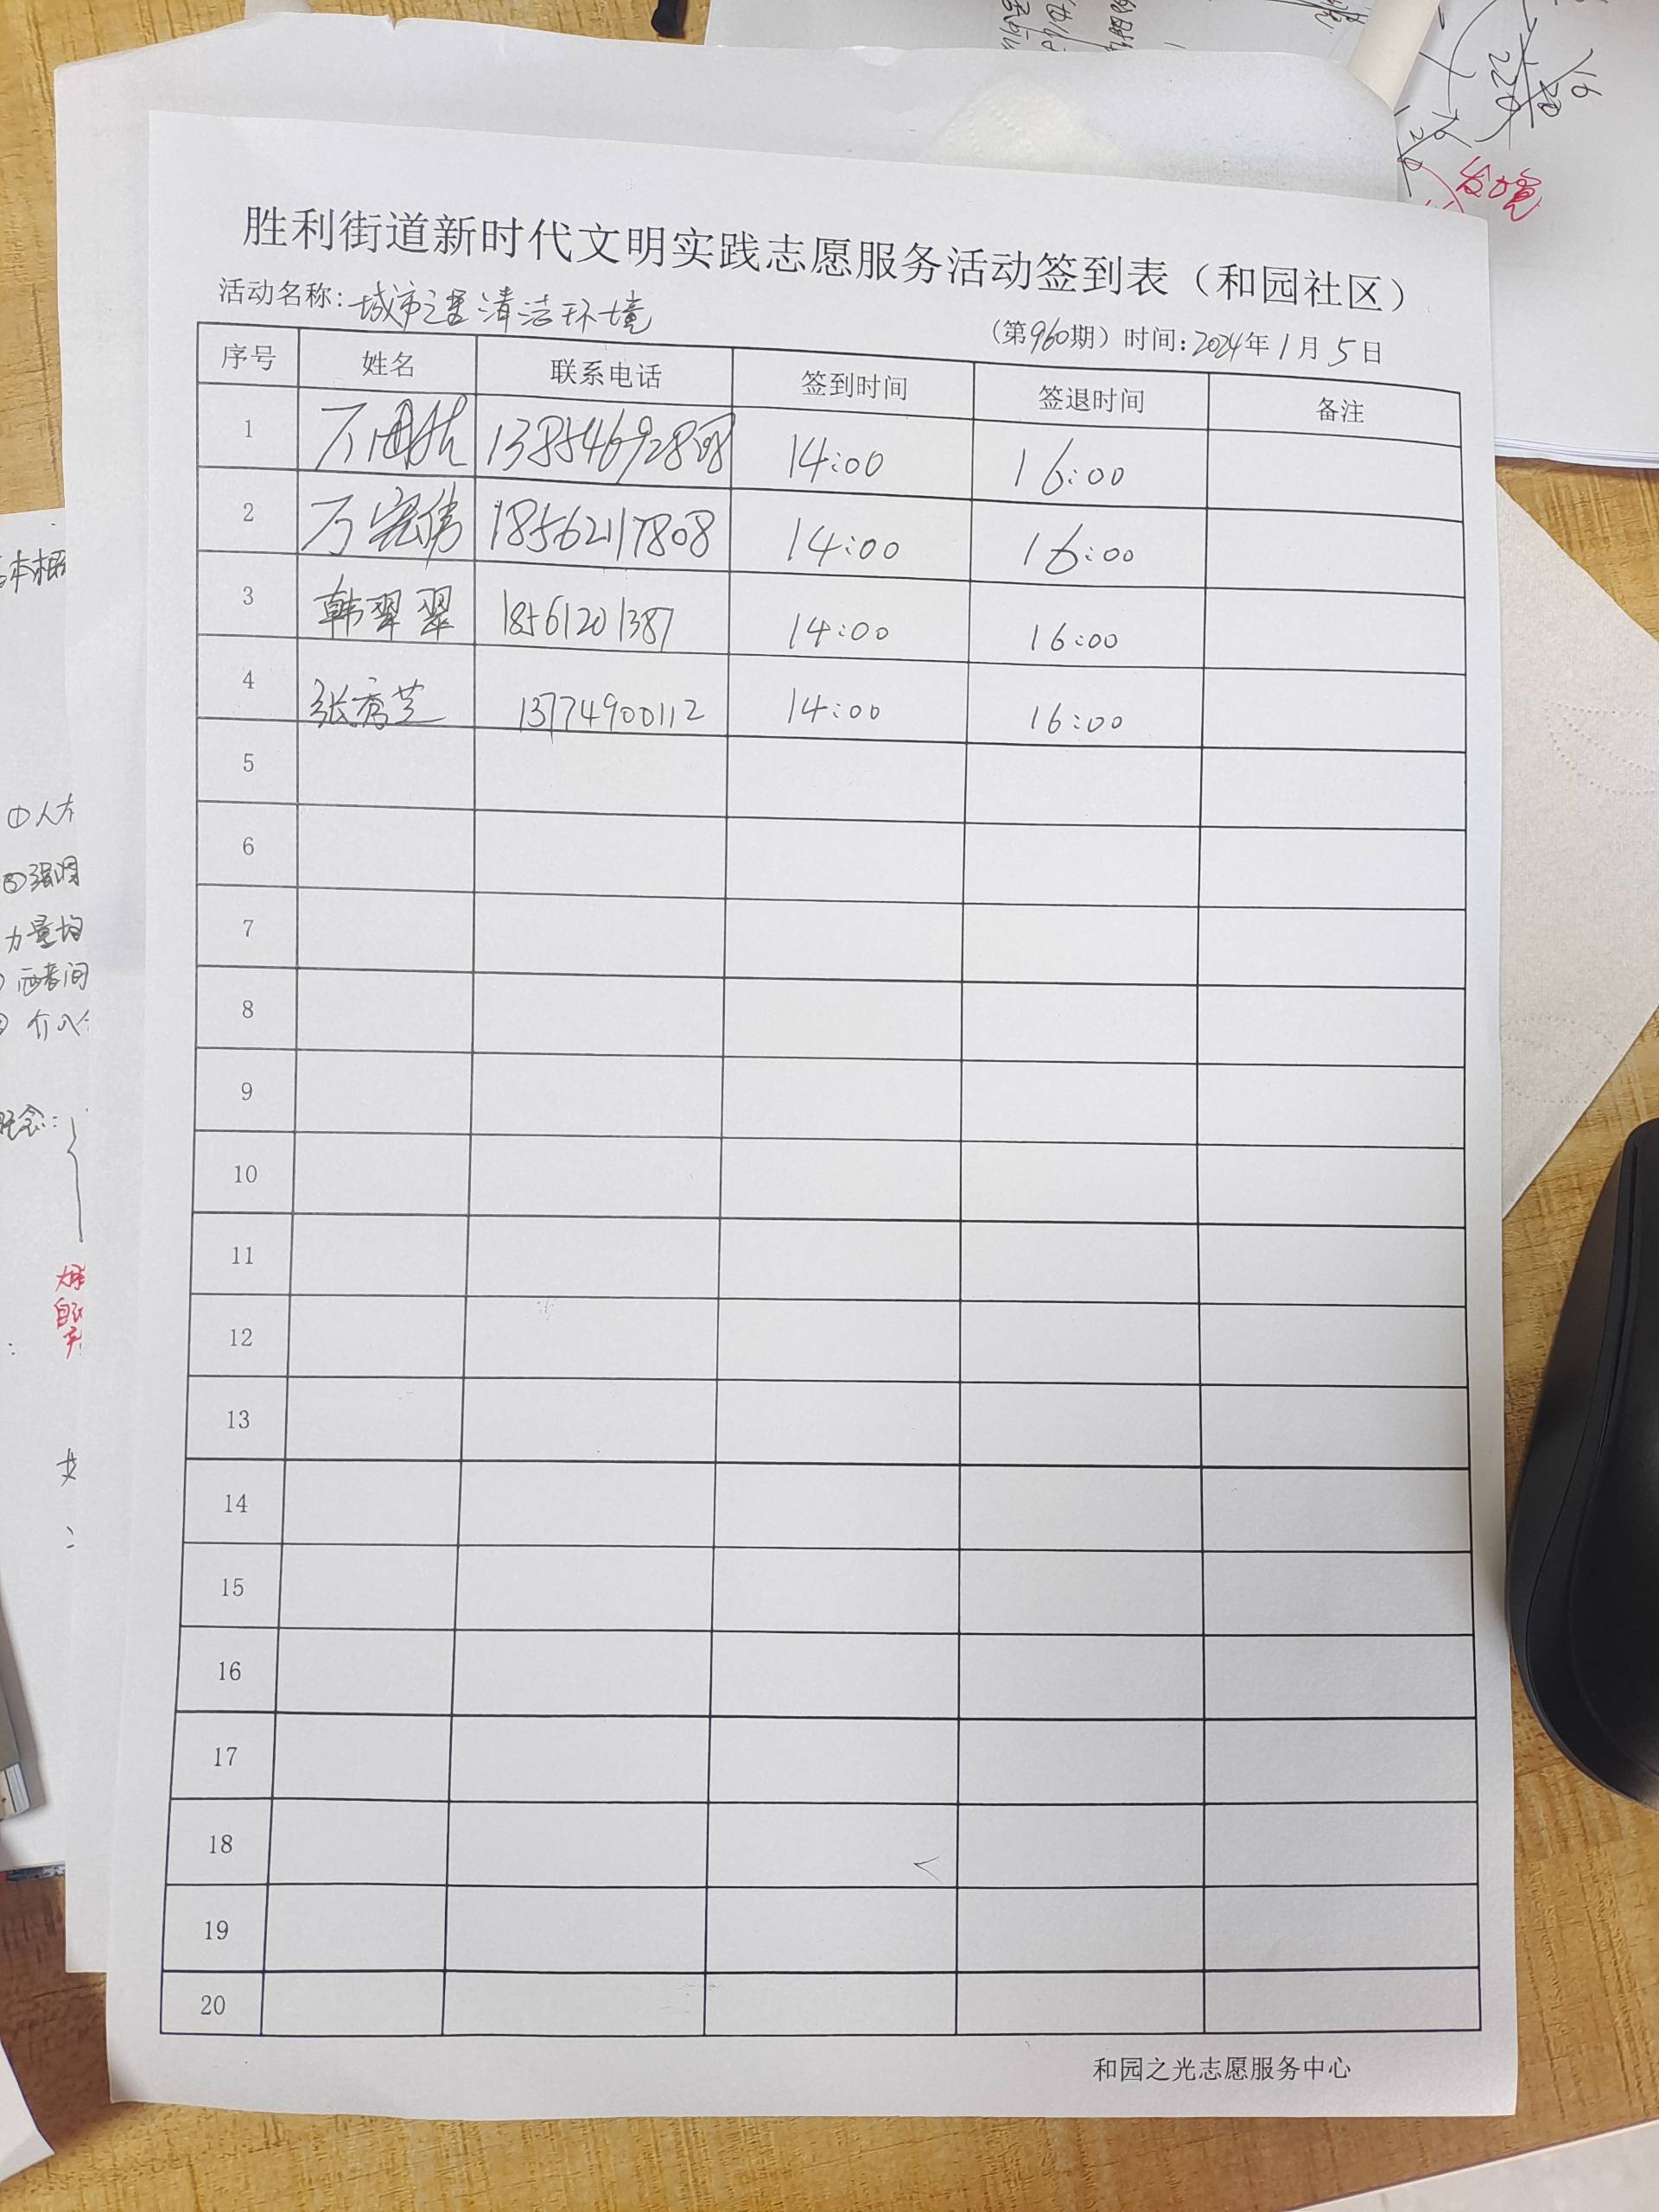 胜利街道新时代文明实践志愿服务活动签到表（和园社区）
活动名称：城市之美清洁环境
（第960期）时间：2024年1月5日
序号 姓名 联系电话 签到时间 签退时间 备注
1 万 14:00 16:00
2 万宪伟 18562117808 14:00 16:00
3 韩翠翠 18561201387 14:00 16:00
4 张秀芝 13774900112 14:00 16:00
5
6
7
8
9
10
11
12
13
14
15
16
17
18
19
20
和园之光志愿服务中心
发力宽
本相
①人
强调
力量均
两者间
介入
概念：